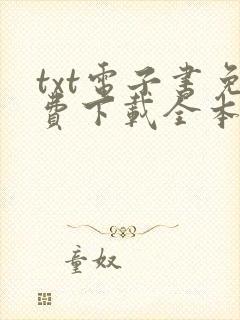 txt電子書免
費下載全本
童奴